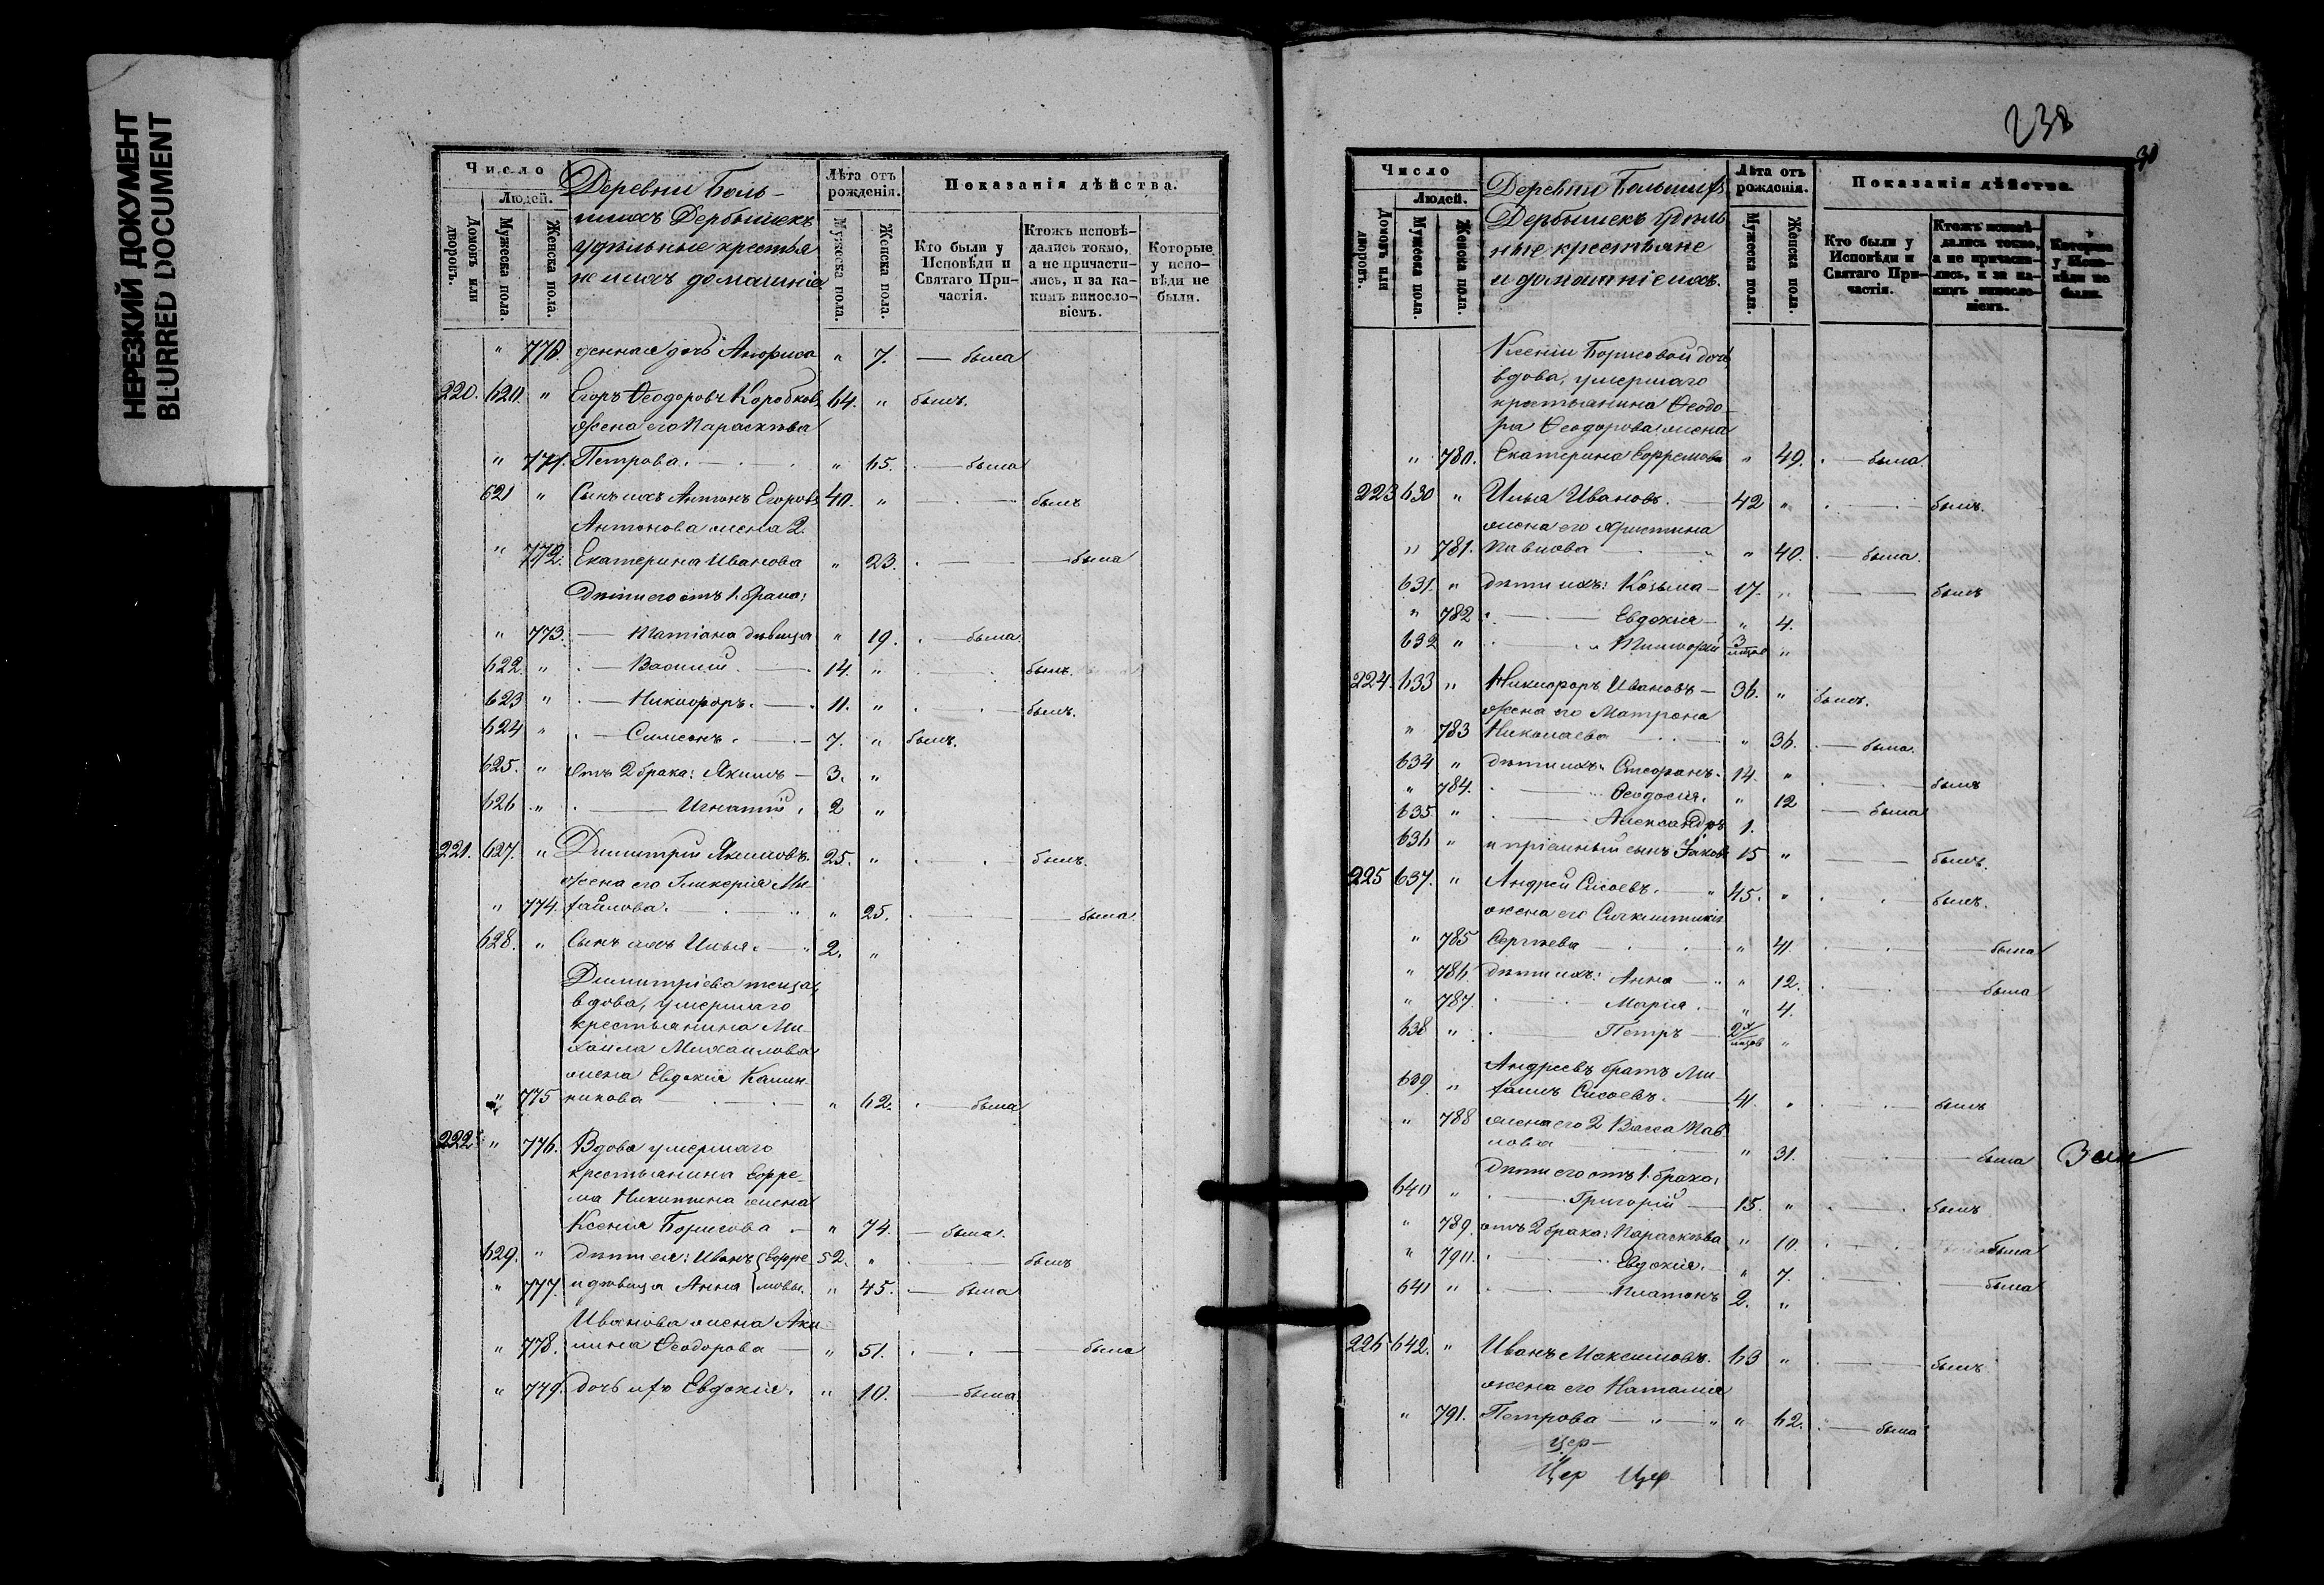 НЕРЕЗКИЙ ДОКУМЕНТ
BLURRED DOCUMENT
Число
Людей.
Домовъ или дворовъ.
Мужеска пола.
Женска пола.
Деревни Боль-
шихъ Дербышекъ
удѣльные крестья
не и ихъ домашніе
Лѣта отъ рожденія.
Мужеска пола.
Женска пола.
Показанія дѣйства.
Кто были у Исповѣди и Святаго При-частія.
Ктожъ исповѣ-дались токмо, а не причасти-лись, и за ка-кимъ винословіемъ.
Которые у испо-вѣди не были.
" 770. денная дочь Анфиса " 7. — была
220. 620. " Егоръ Ѳеодоровъ Коробковъ 64. " былъ.
жена его Параскѣва
" 771. Петрова. " 65. — была
621 " Сынъ ихъ Антонъ Егоровъ 40. " — былъ
Антонова жена 2.
" 772. Екатерина Иванова " 23. — была
Дѣти его отъ 1. брака:
" 773. — Татіана дѣвица " 19. — была.
622. " — Василій. 14. " былъ.
623 " — Никифоръ. 11. " былъ.
624 " — Симеонъ. 7. " былъ.
625. " Отъ 2 брака: Якимъ — 3. "
626 " — Игнатій. 2 "
221. 627. " Димитрій Якимовъ. 25. " былъ.
жена его Гликерія Ми-
" 774. хайлова. " 25. — была.
628. " Сынъ ихъ Илья. — 2. "
Димитріева теща,
вдова, умершаго
крестьянина Ми-
хаила Михаилова
жена Евдокія Калин-
" 775 никова — " 62. — была
222. " 776. Вдова умершаго
крестьянина Ефре-
ма Никитина жена
Ксенія Борисова — " 74. — была.
629. " дѣти ея: Иванъ { Ефре 52. " — былъ
" 777. и дѣвица Анна { мовы. " 45. — была
Иванова жена Аки-
" 778. лина Ѳеодорова — " 51. — была
" 779. дочь ихъ Евдокія. " 10. — была
238
30
Число
Людей.
Домовъ или дворовъ.
Мужеска пола.
Женска пола.
Деревни Большихъ
Дербышекъ удѣль
ные крестьяне
и домашніе ихъ.
Лѣта отъ рожденія.
Мужеска пола.
Женска пола.
Показанія дѣйства.
Кто были у Исповѣди и Святаго При-частія.
Ктожъ исповѣ-дались токмо, а не причасти-лись, и за ка-кимъ винословіемъ.
Которые у Испо-вѣди не были.
Ксеніи Борисовой дочь,
вдова, умершаго
крестьянина Ѳеодо-
ра Ѳеодорова жена
" 780. Екатерина Ефремова " 49. — была
223 630 " Илья Ивановъ. — 42 " былъ.
жена его Христина
" 781. Павлова " 40. — была.
631. " дѣти ихъ: Козьма — 17. " — былъ
" 782 — Евдокія — " 4.
632 " Тимофей 3 мѣсяц "
224. 633 " Никифоръ Ивановъ — 36. " былъ.
жена его Матрона
" 783 Николаева " 36. — была.
634 " дѣти ихъ: Стефанъ. 14. " былъ
" 784. Ѳеодосія. " 12 — была
635 " Александръ 1.
636 " и пріемный сынъ Іаковъ 15 " — былъ.
225 637. " Андрей Сысоевъ. — 45. " былъ.
жена его
" 785 Сергѣева — " 41. была
" 786 дѣти ихъ: Анна — " 12. — была
" 787. Марія. " 4.
638 " Петръ — 2 мѣсяц "
Андреевъ братъ Ми-
639. " хаилъ Сысоевъ. — 41. " былъ
" 788 жена его 2 Васса Пав-
лова " 31. — была
дѣти его отъ 1. брака:
640 " Григорій — 15. " былъ
" 789. отъ 2 брака: Параскѣва " 10. была
" 790. Евдокія. " 7. — была
641 " Платонъ 2. "
226 642. " Иванъ Максимовъ. 63 " — былъ
жена его Наталія
" 791. Петрова — " 62. — была
Цер-
Цер Цер